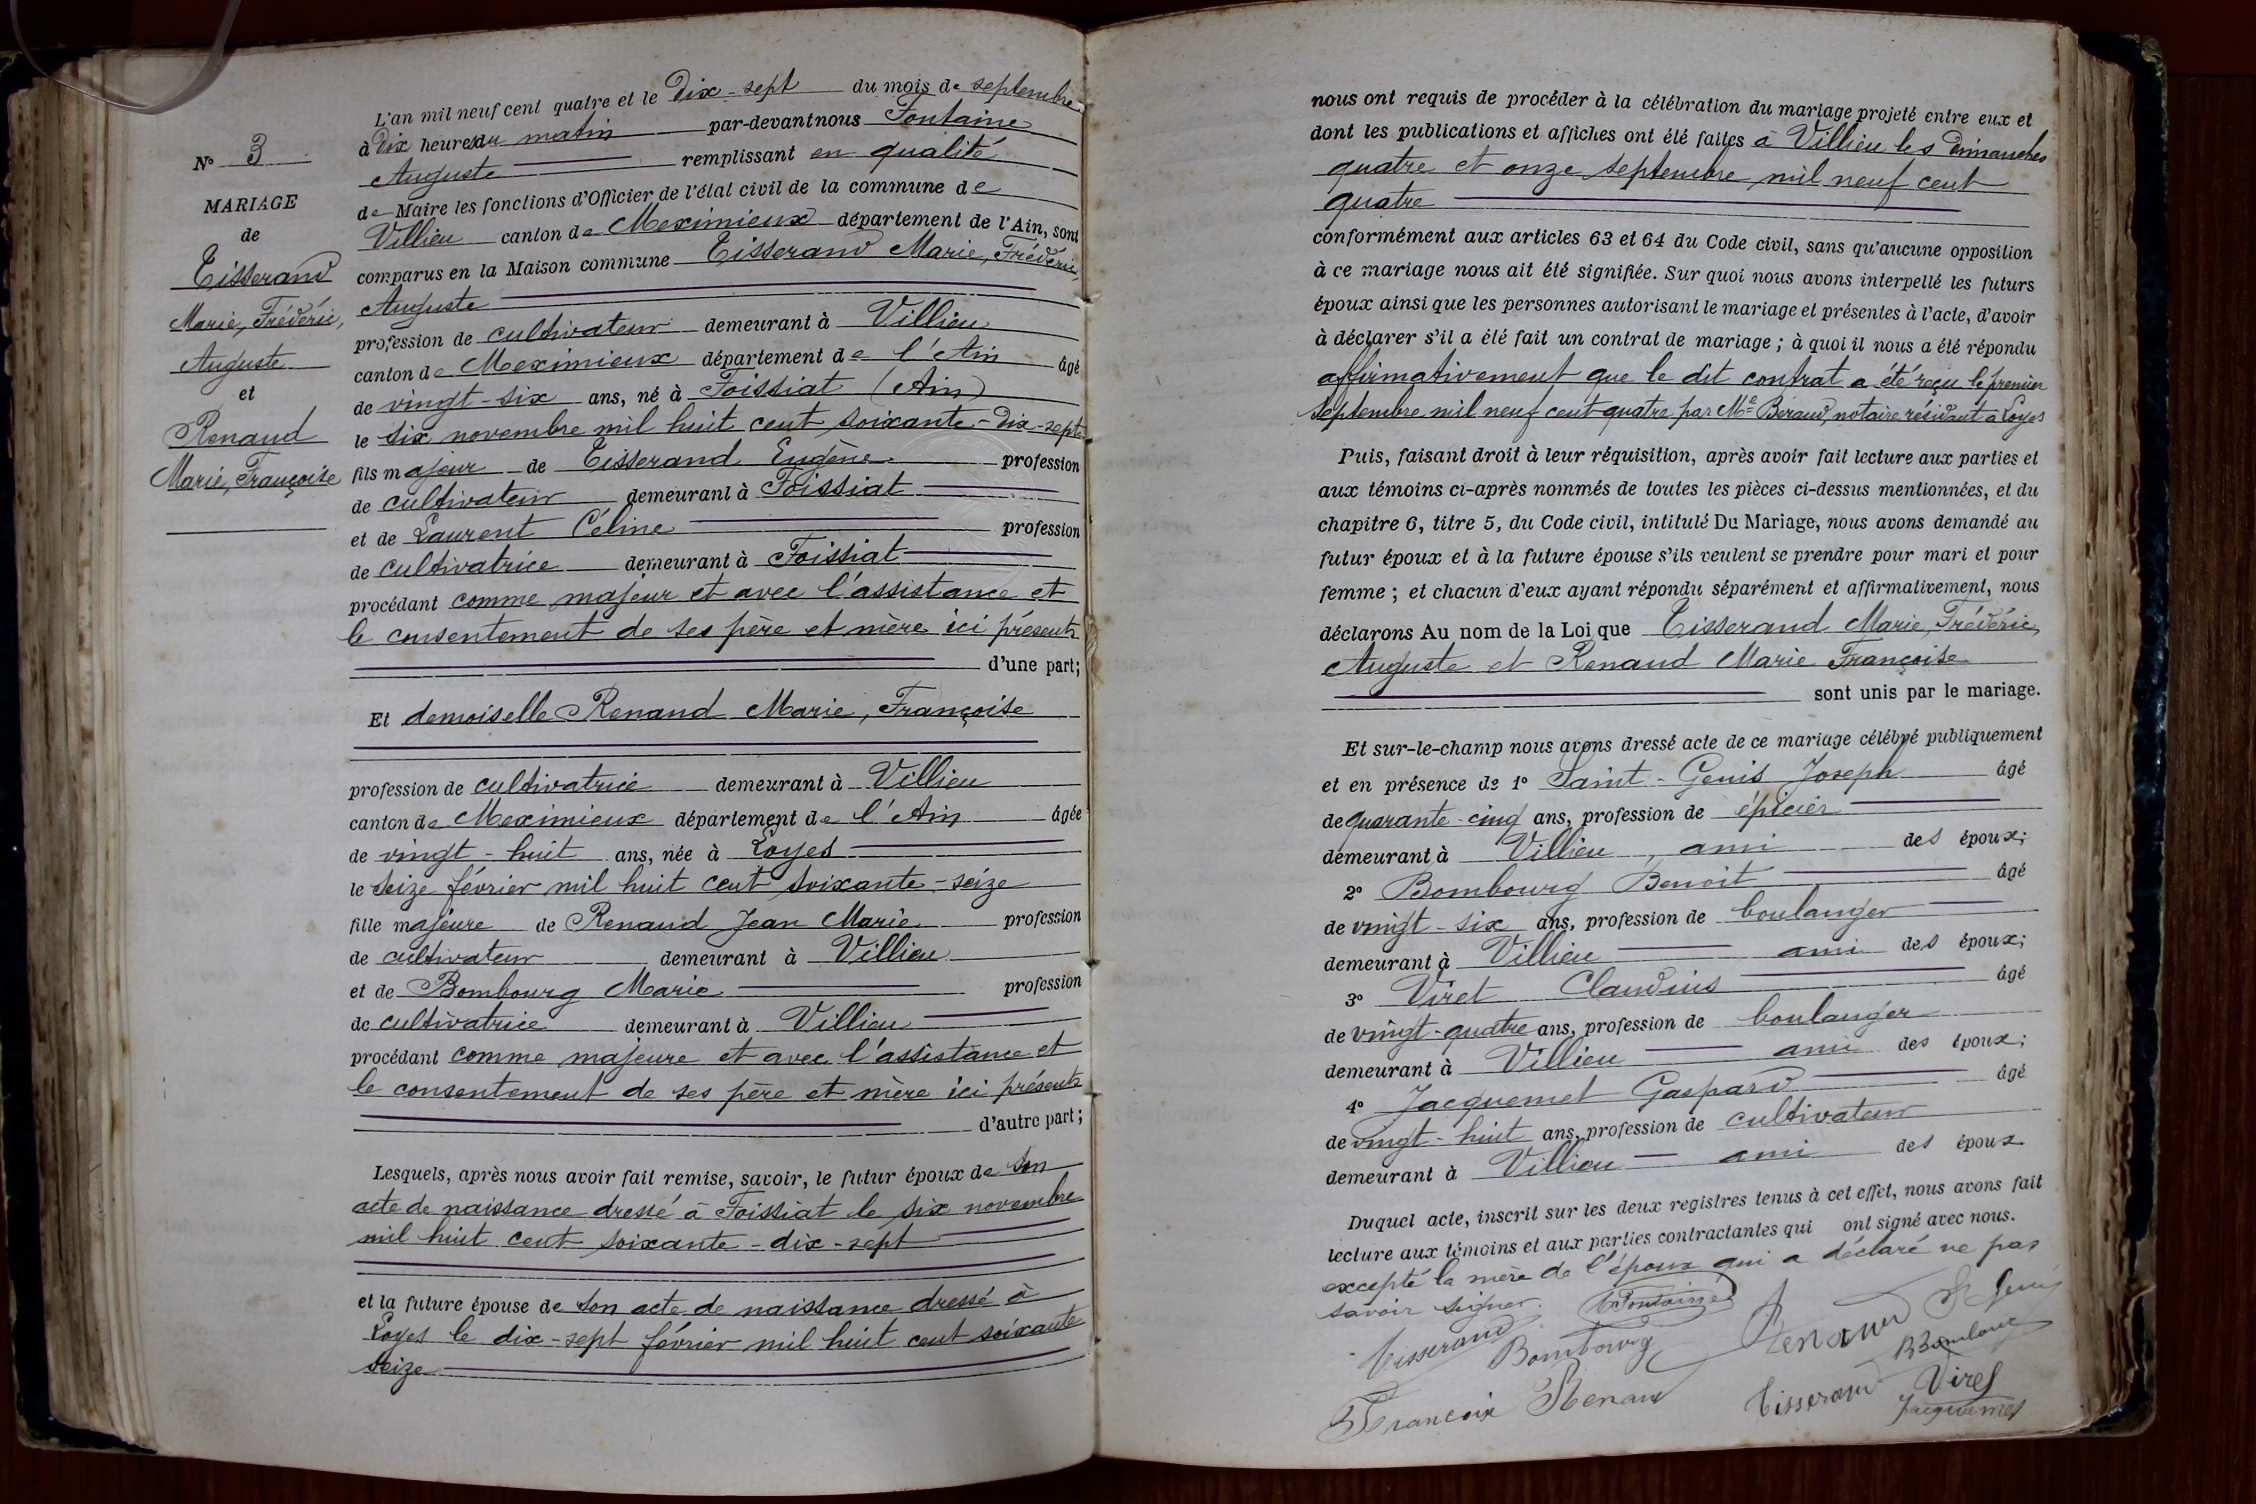 N° 3
MARIAGE
de
Tisserand
Marie, Frédéric,
Auguste
et
Renaud
Marie, Françoise
L'an mil neuf cent quatre et le Dix-sept du mois de septembre
à Dix heures du matin par-devant nous Fontaine
Auguste remplissant en qualité
de Maire les fonctions d'Officier de l'état civil de la commune de
Villieu canton de Meximieux département de l'Ain, sont
comparus en la Maison commune Tisserand Marie, Frédéric,
Auguste
profession de cultivateur demeurant à Villieu
canton de Meximieux département de l'Ain âgé
de vingt-six ans, né à Foissiat (Ain)
le six novembre mil huit cent soixante-dix-sept
fils majeur de Tisserand Eugène profession
de cultivateur demeurant à Foissiat
et de Laurent Céline profession
de cultivatrice demeurant à Foissiat
procédant comme majeur et avec l'assistance et
le consentement de ses père et mère ici présents
d'une part;
Et demoiselle Renaud Marie, Françoise
profession de cultivatrice demeurant à Villieu
canton de Meximieux département de l'Ain âgée
de vingt-huit ans, née à Loyes
le seize février mil huit cent soixante-seize
fille majeure de Renaud Jean Marie profession
de cultivateur demeurant à Villieu
et de Bombourg Marie profession
de cultivatrice demeurant à Villieu
procédant comme majeure et avec l'assistance et
le consentement de ses père et mère ici présents
d'autre part;
Lesquels, après nous avoir fait remise, savoir, le futur époux de son
acte de naissance dressé à Foissiat le six novembre
mil huit cent soixante-dix-sept
et la future épouse de son acte de naissance dressé à
Loyes le dix-sept février mil huit cent soixante
seize
nous ont requis de procéder à la célébration du mariage projeté entre eux et
dont les publications et affiches ont été faites à Villieu les Dimanches
quatre et onze septembre mil neuf cent
quatre
conformément aux articles 63 et 64 du Code civil, sans qu'aucune opposition
à ce mariage nous ait été signifiée. Sur quoi nous avons interpellé les futurs
époux ainsi que les personnes autorisant le mariage et présentes à l'acte, d'avoir
à déclarer s'il a été fait un contrat de mariage; à quoi il nous a été répondu
affirmativement que le dit contrat a été reçu le premier
septembre mil neuf cent quatre par Me Béraud, notaire résidant à Loyes
Puis, faisant droit à leur réquisition, après avoir fait lecture aux parties et
aux témoins ci-après nommés de toutes les pièces ci-dessus mentionnées, et du
chapitre 6, titre 5, du Code civil, intitulé Du Mariage, nous avons demandé au
futur époux et à la future épouse s'ils veulent se prendre pour mari et pour
femme; et chacun d'eux ayant répondu séparément et affirmativement, nous
déclarons Au nom de la Loi que Tisserand Marie, Frédéric,
Auguste et Renaud Marie Françoise
sont unis par le mariage.
Et sur-le-champ nous avons dressé acte de ce mariage célébré publiquement
et en présence de 1° Saint-Genis Joseph âgé
de quarante-cinq ans, profession de épicier
demeurant à Villieu, ami des époux;
2° Bombourg Benoit âgé
de vingt-six ans, profession de boulanger
demeurant à Villieu ami des époux;
3° Viret Claudius âgé
de vingt-quatre ans, profession de boulanger
demeurant à Villieu ami des époux;
4° Jacquemet Gaspard âgé
de vingt-huit ans, profession de cultivateur
demeurant à Villieu ami des époux
Duquel acte, inscrit sur les deux registres tenus à cet effet, nous avons fait
lecture aux témoins et aux parties contractantes qui ont signé avec nous.
excepté la mère de l'époux qui a déclaré ne pas
savoir signer.
Fontaine
Renaud
St Genis
Tisserand
Bombourg
Françoise Renaud
Tisserand
Viret
Jacquemet